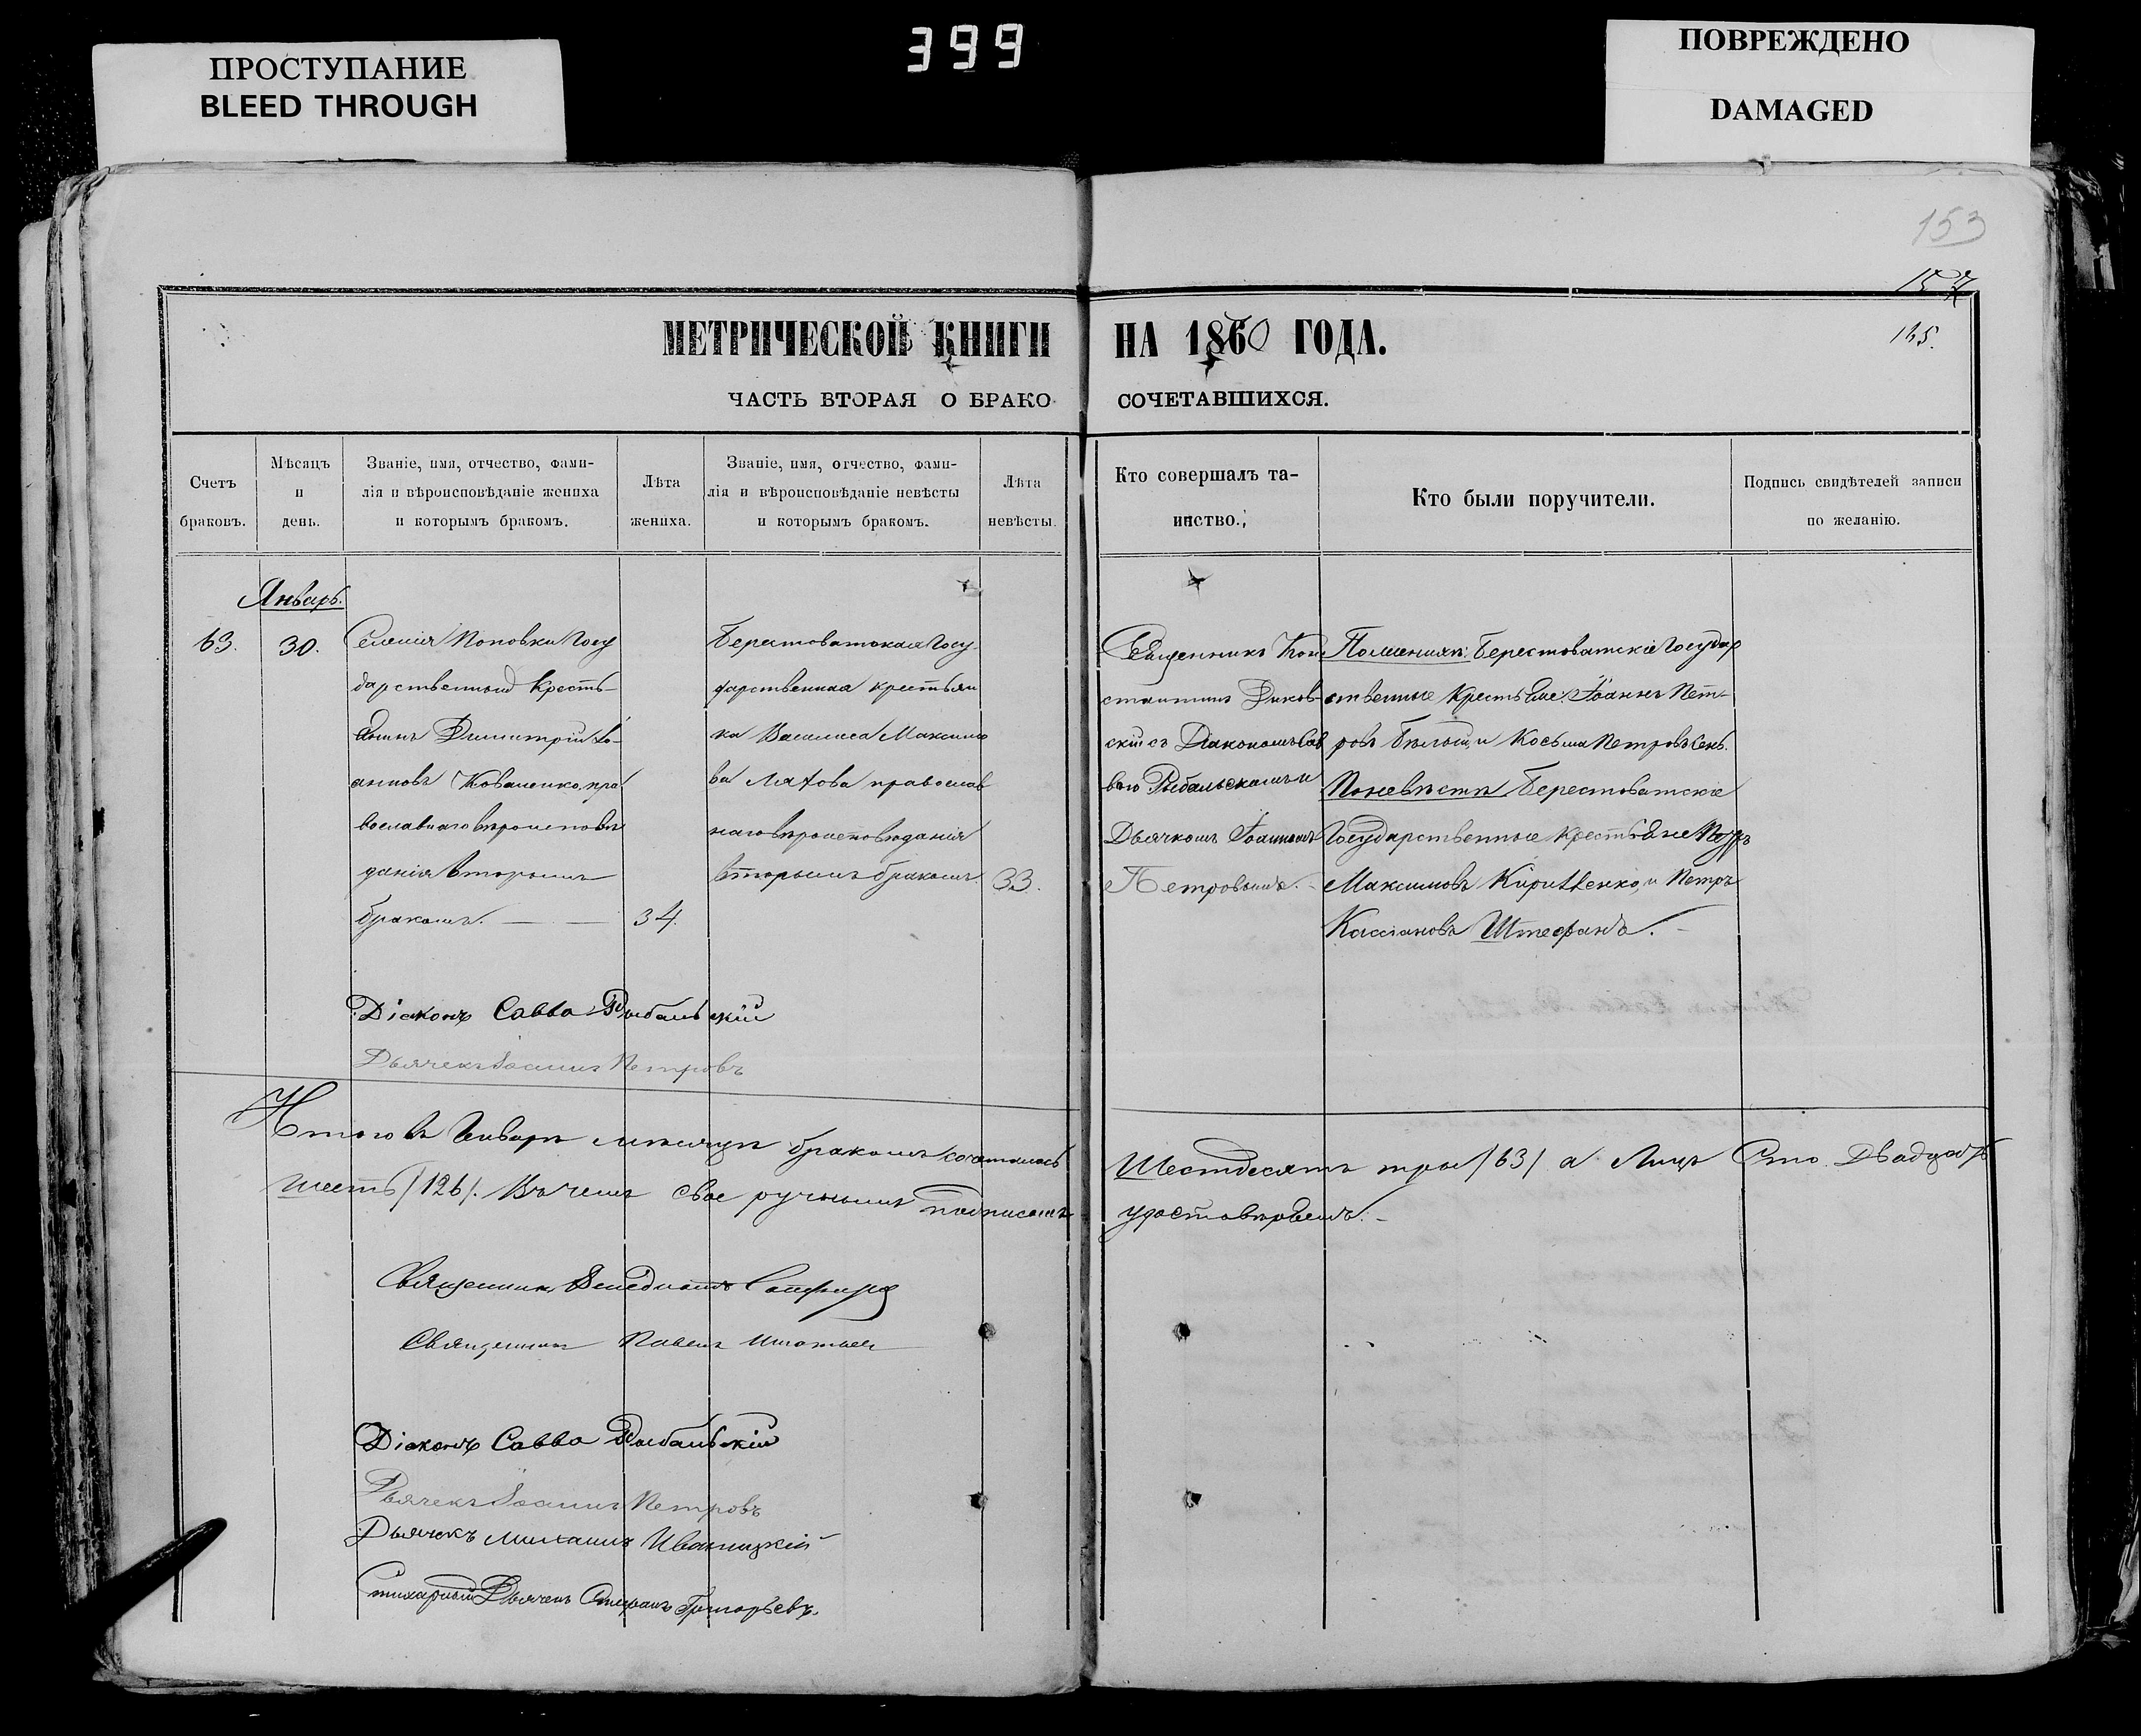 399
ПРОСТУПАНИЕ
BLEED THROUGH
ПОВРЕЖДЕНО
DAMAGED
153
157
125.
МЕТРИЧЕСКОЙ КНИГИ НА 1860 ГОДА.
ЧАСТЬ ВТОРАЯ О БРАКОСОЧЕТАВШИХСЯ.
Счетъ
браковъ.
Мѣсяцъ
и
день.
Званіе, имя, отчество, фами-
лія и вѣроисповѣданіе жениха
и которымъ бракомъ.
Лѣта
жениха.
Званіе, имя, отчество, фами-
лія и вѣроисповѣданіе невѣсты
и которымъ бракомъ.
Лѣта
невѣсты.
Кто совершалъ та-
инство.
Кто были поручители.
Подпись свидѣтелей записи
по желанію.
Январь.
63.
30.
Селенія Поповки Госу
дарственный Кресть-
янинъ Димитрій Іо-
анновъ Коваленко, пра
вославнаго вѣроисповѣ
данія вторымъ
бракомъ.
34.
Берестоватская Госу
дарственная крестьян
ка Василиса Максимо
ва Ляхова православ
наго вѣроисповѣданія
вторымъ бракомъ.
33.
Священникъ Кон
стантинъ Диков-
скій съ Діакономъ Сав
вою Рыбальскимъ и
Дьячкомъ Іоанномъ
Петровымъ.
По женихѣ: Берестоватскіе Государ
ственные Крестьяне: Іоаннъ Пет-
ровъ Бѣлый, и Косьма Петровъ Сень.
По невѣстѣ Берестоватскіе
Государственные Крестьяне
Максимовъ Кириченко, и Петръ
Кассіановъ Штефанъ.
Діаконъ Савва Рыбальскій
Дьячекъ Іоаннъ Петровъ
Итого въ Генварѣ мѣсяцѣ бракомъ сочеталось Шестдесятъ три /63/ а Лицъ Сто Двадцать
шесть /126/. Въ чемъ свое ручнымъ подписомъ удостовѣряемъ.
Священникъ Венедиктъ
Священникъ Павелъ
Діаконъ Савва Рыбальскій
Дьячекъ Іоаннъ Петровъ
Дьячекъ Михаилъ Иваницкій
Стихарный Дьячекъ Стефанъ Григорьевъ.